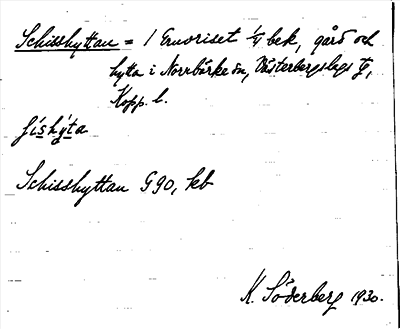 Schisshyttan = 1 Ernoriset 1/4 bek, gård och
hytta i Norrbärke sn, Västerbergslags tg,
Kopp. l.
ſís̱hy̱ta
Schisshyttan G 90, kb
K. Söderberg 1930.